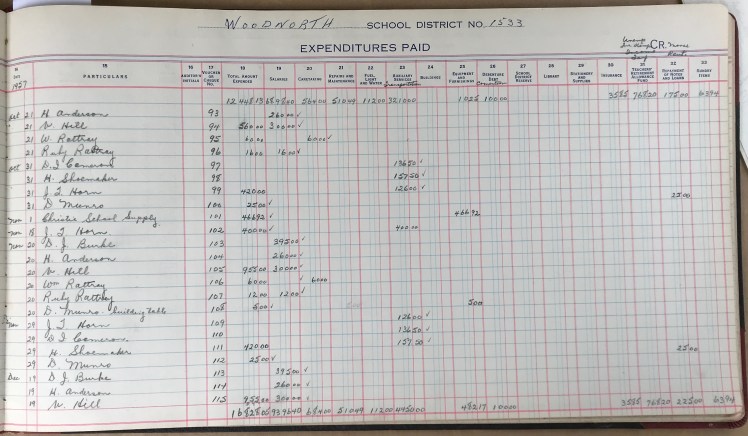 WOODNORTH SCHOOL DISTRICT NO. 1533
EXPENDITURES PAID CR.
1957 PARTICULARS AUDITOR'S INITIALS VOUCHER OR CHEQUE NO. TOTAL AMOUNT EXPENDED SALARIES CARETAKING REPAIRS AND MAINTENANCE FUEL, LIGHT AND WATER AUXILIARY SERVICES Transportation BUILDINGS EQUIPMENT AND FURNISHINGS DEBENTURE DEBT SCHOOL DISTRICT RESERVE LIBRARY STATIONERY AND SUPPLIES INSURANCE TEACHERS' RETIREMENT ALLOWANCE FUND REPAYMENT OF NOTES AND LOANS SUNDRY ITEMS
12448 13 6898 00 564 00 510 49 112 00 3210 00 10 25 100 00 35 85 768 20 175 00 63 94
Oct 21 H. Anderson 93 260 00 ✓
21 V. Hill 94 560 00 300 00 ✓
21 W Rattray 95 60 00 60 00 ✓
21 Ruby Rattray 96 16 00 16 00 ✓
Oct 31 D. J Cameron 97 136 50 ✓
31 H. Shoemaker 98 157 50 ✓
31 J. T. Horn 99 420 00 126 00 ✓
31 D. Munro 100 25 00 ✓ 25 00
Nov 1 Christie School Supply 101 466 92 ✓ 466 92
Nov 18 J. T. Horn 102 400 00 ✓ 400 00
Nov 20 D. J. Burke 103 395 00 ✓
20 H. Anderson 104 260 00 ✓
20 V. Hill 105 955 00 300 00 ✓
20 Wm Rattray 106 60 00 ✓ 60 00
20 Ruby Rattray 107 12 00 12 00 ✓
20 D. Munro building table 108 5 00 ✓ 5 00
Nov 29 J. T. Horn 109 126 00 ✓
29 D J Cameron 110 136 50 ✓
29 H. Shoemaker 111 420 00 157 50 ✓
29 D. Munro 112 25 00 ✓ 25 00
Dec 19 D J. Burke 113 395 00 ✓
19 H. Anderson 114 260 00 ✓
19 V. Hill 115 955 00 300 00 ✓
16828 05 9396 40 684 00 510 49 112 00 4450 00 482 17 100 00 35 85 768 20 225 00 63 94